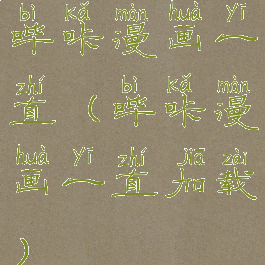 bì kǎ màn huà yī
哔咔漫画一
zhí bì kǎ màn
直（哔咔漫
huà yī zhí jiā zài
画一直加载
）